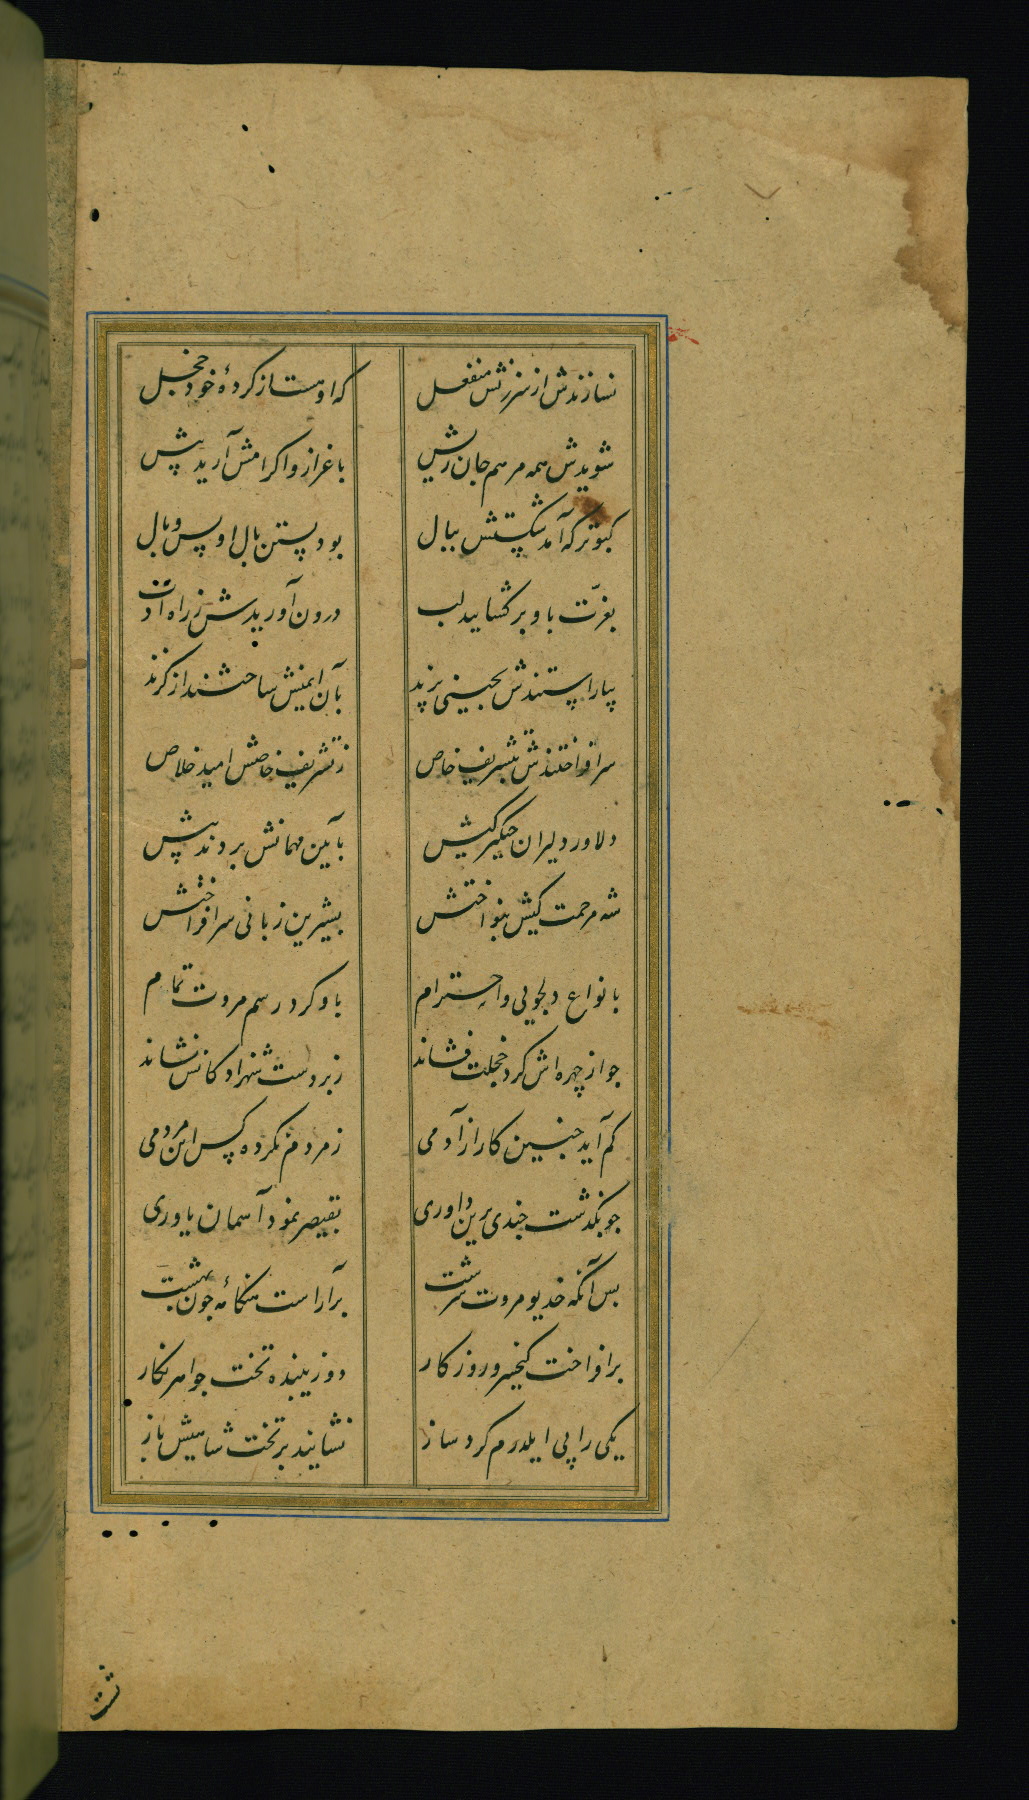 نسازندش از سرزنش منفعل که او هست از کردهٔ خود خجل
شویدش همه مرهم جان ریش باعزاز و اکرامش آرید پیش
کبوتر که آمد شکستش ببال بود بستن بال او بس وبال
بعزّت باو برکشایید لب درون آوریدش ز راه ادب
بیاراستندش بچینی پرند بآن ایمنیش ساختند از کزند
سرافراختندش بتشریف خاص ز تشریف خاصش امید خلاص
دلاور دلیران جنکیز کیش بآیین مهمانش بردند پیش
شه مرحمت کیش بنواختش بشیرین زبانی سرافراختش
بانواع دلجویی و احترام باو کرد رسم مروت تمام
جو از چهره اش کرد خجلت فشاند زبردست شهزادکانش نشاند
کم آید جنین کار از آدمی ز مردم نکرده کس این مردمی
جو بکذشت جندی برین داوری بقیصر نمود آسمان یاوری
بس آنکه خدیو مروت سرشت برآراست هنکامهٔ جون بهشت
برافراخت کیخسرو روزکار دو زیبنده تخت جواهرنکار
یکی را پی ایلدرم کرد ساز نشانید بر تخت شاهیش باز
نشست